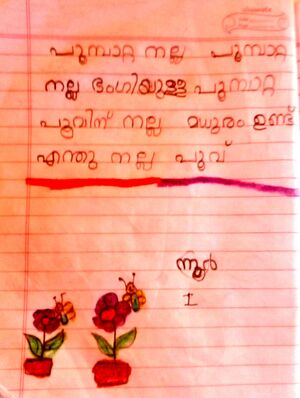 പൂമ്പാറ്റ നല്ല പൂമ്പാറ്റ
നല്ല ഭംഗിയുള്ള പൂമ്പാറ്റ
പൂവിന് നല്ല മധുരം ഉണ്ട്
എന്തു നല്ല പൂവ്
നൂർ
I